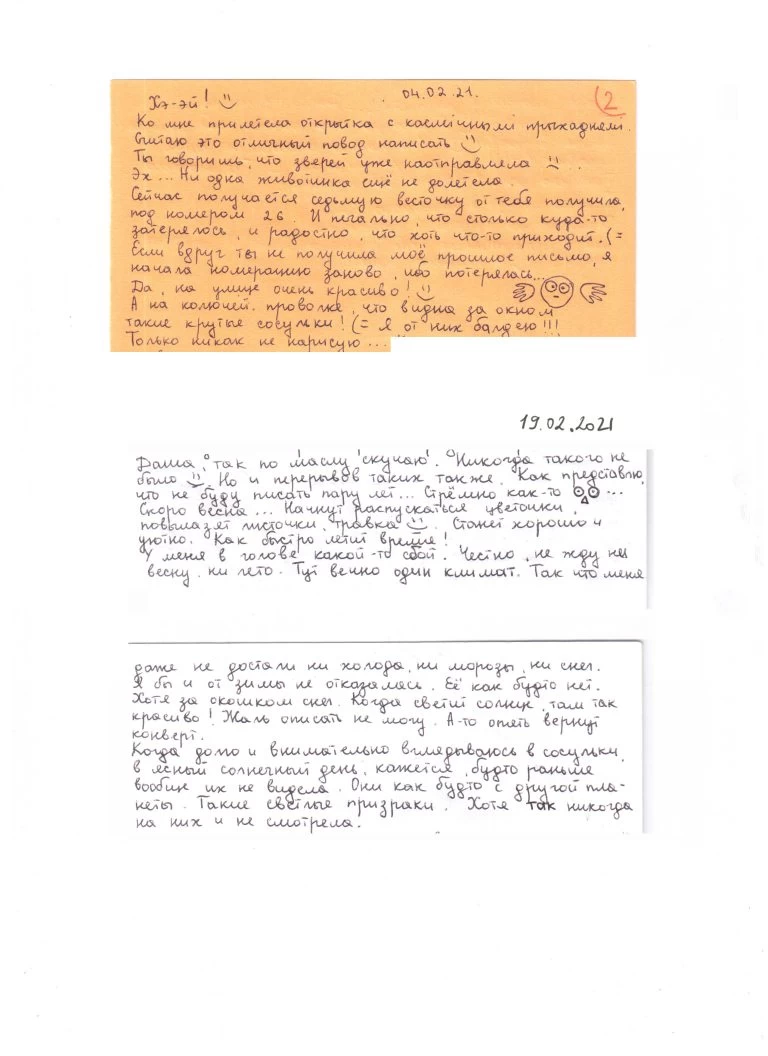 Хэ-эй! 04.02.21. 2
Ко мне прилетела открытка с касмiчнымi прыхаднямi.
Считаю это отличный повод написать
Ты говоришь, что зверей уже наотправляла ...
Эх... Ни одна животинка ещё не долетела.
Сейчас получается седьмую весточку от тебя получила,
под номером 26. И печально, что столько куда-то
затерялось, и радостно, что хоть что-то приходит. (=
Если вдруг ты не получила моё прошлое письмо, я
начала нумерацию заново, ибо потерялась...
Да, на улице очень красиво!
А на колючей проволке, что видна за окном
такие крутые сосульки! (= Я от них балдею!!!
Только никак не нарисую ...
19.02.2021
Даша, так по маслу скучаю. Никогда такого не
было Но и перерывов таких также. Как представлю,
что не буду писать пару лет... Стрёмно как-то ...
Скоро весна... Начнут распускаться цветочки,
повылазят листочки, травка. Станет хорошо и
уютно. Как быстро летит время!
У меня в голове какой-то сбой. Честно, не жду ни
весну, ни лето. Тут вечно один климат. Так что меня
даже не достали ни холода, ни морозы, ни снег.
Я бы и от зимы не отказалась. Её как будто нет.
Хотя за окошком снег. Когда светит солнце, там так
красиво! Жаль описать не могу. А-то опять вернут
конверт.
Когда долго и внимательно вглядываюсь в сосульки,
в ясный солнечный день, кажется, будто раньше
вообще их не видела. Они как будто с другой пла-
неты. Такие светлые призраки. Хотя так никогда
на них и не смотрела.